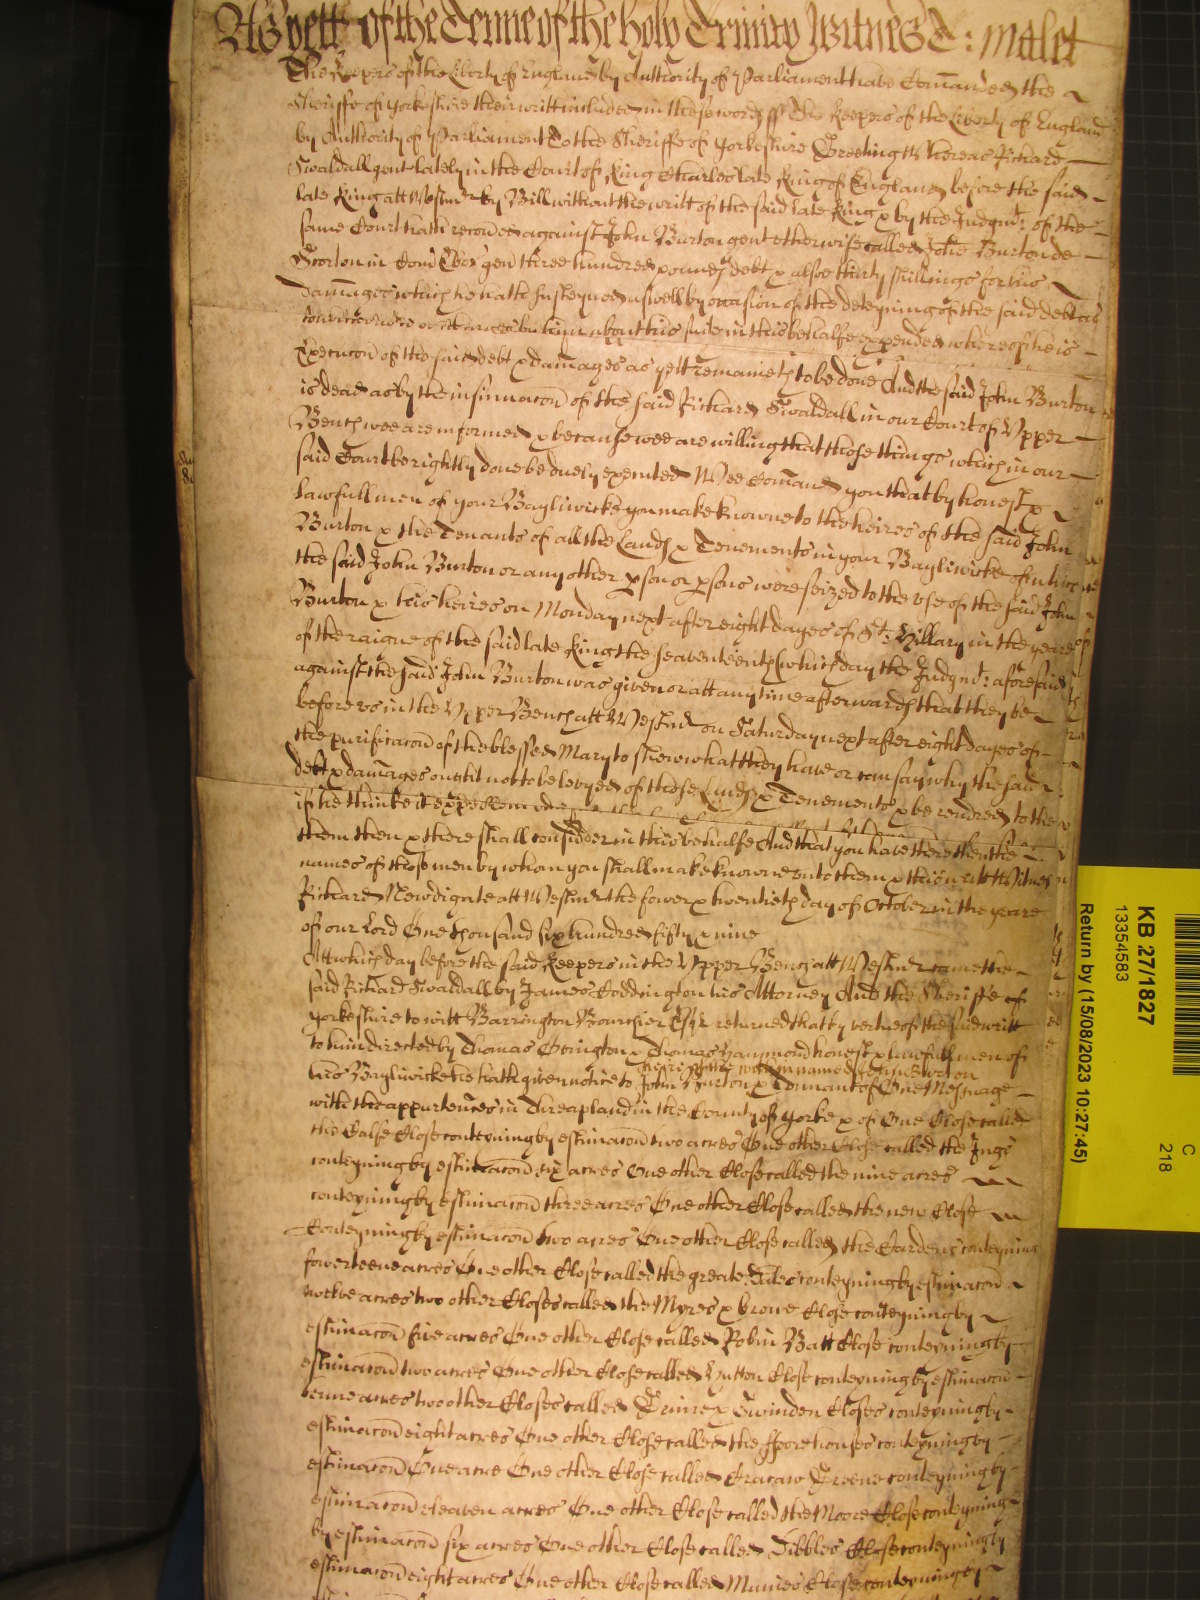 As yett of the Terme of the holy Trinity Witnes T: Mallet
The Keepers of the Liberty of England by Authority of Parliament have Comaunded the
Sheriffe of Yorkeshire their writt included in these words ss The Keepers of the Liberty of England
by Authority of Parliament To the Sheriffe of Yorkeshire Greeting Whereas Richard
Swaldall gent lately in the Court of King Charles late King of England before the said
late King att Westmr by Bill without the writt of the said late King & by the Judgmt: of the
same Court hath recovered against John Burton gent otherwise called John Burton de
Scorton in Com Ebor gen three hundred pounds debt & alsoe thirty shillings for his
Damages which he hath susteyned aswell by occasion of the deteyning of the said debt as
by him about his suite in this behalfe expended whereof he is
Execucon of the said debt & damages as yett remaineth to be done And the said John Burton
is dead as by the insinuacon of the said Richard Swaldall in our Court of Upper
Bench wee are informed & because wee are willing that those things which in our
said Court be rightly done be duely executed Wee Comaund you that by honest &
lawfull men of your Bayliwicke you make knowne to the heires of the said John
Burton & the Tenants of all the Lands & Tenements in your Bayliwicke of which
the said John Burton or any other pson or psons were seized to the use of the said John
Burton & his heires on Monday next after eight dayes of St: Hillary in the yeare
of the raigne of the said late King the seaventeenth (which day the Judgmt: aforesaid
against the said John Burton was given or att any time afterwards that they be
before us in the Upper Bench att Westmr on Saturday next after eight dayes of
the purificacon of the blessed Mary to shew what they have or can say why the said
debt & damages ought not to be levyed of those Lands & Tenements & be rendred to the
if he thinke it expedient
them then & there shall consider in this behalfe And that you have there then the
names of those men by whom you shall make knowne unto them & this writt Witnes
Richard Newdigate att Westmr the fower & twentieth day of October in the yeare
of our Lord One thousand six hundred fifty & nine
Att which day before the said Keepers in the Upper Bench att Westmr came the
said Richard Swaldall by James Coddington his Attorney And the Sheriffe of
Yorkeshire to witt Barrington Bourchier Esqr returned that by vertue of the said writt
to him directed by Thomas Overington & Thomas Hammond honest & lawfull men of
his Bayliwicke he hath given notice to John Burton & Tennant of One Messuage
with the appurtences in Threapland in the County of Yorke & of One Close called
the Calfe Close conteyning by estimacon two acres One other Close called the Ings
conteyning by estimacon six acres One other Close called the nine acres
conteyning by estimacon three acres One other Close called the new Close
Conteyning by estimacon two acres One other Close called the Gardens conteyning
fowerteene acres One other Close called the greate conteyning by estimacon
twelve acres two other Closes called the Myres & browe Close conteyning by
estimacon five acres One other Close called Robin Batt Close conteyning by
estimacon two acres One other Close called Hutton Close conteyning by estimacon
tenne acres two other Closes called & Swinden Closes conteyning by
estimacon eight acres One other Close called the conteyning by
estimacon One acre One other Close called Cracaw Greene conteyning by
estimacon eleaven acres One other Close called the Moore Close conteyning
by estimacon six acres One other Close called Dibbles Close conteyning by
estimacon eight acres One other Close called Close conteyning by
KB 27/1827
13354583
Return by (15/08/2023 10:27:45)
C
218